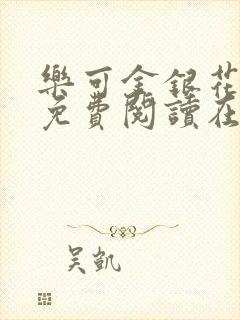 樂可金銀花
免費閱讀在
吴凱